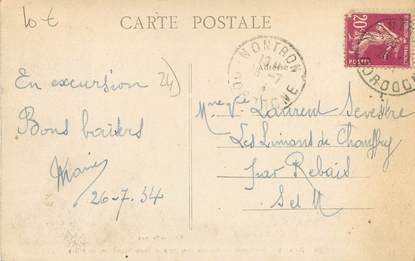 10 €
CARTE POSTALE
Adresse
NONTRON
DORDOGNE
20
POSTES
DORDOGNE
En excursion
24
Bons baisers
26-7.34
Laurent Sevestre
Les Limons de Chauffry
par Rebais
S et M